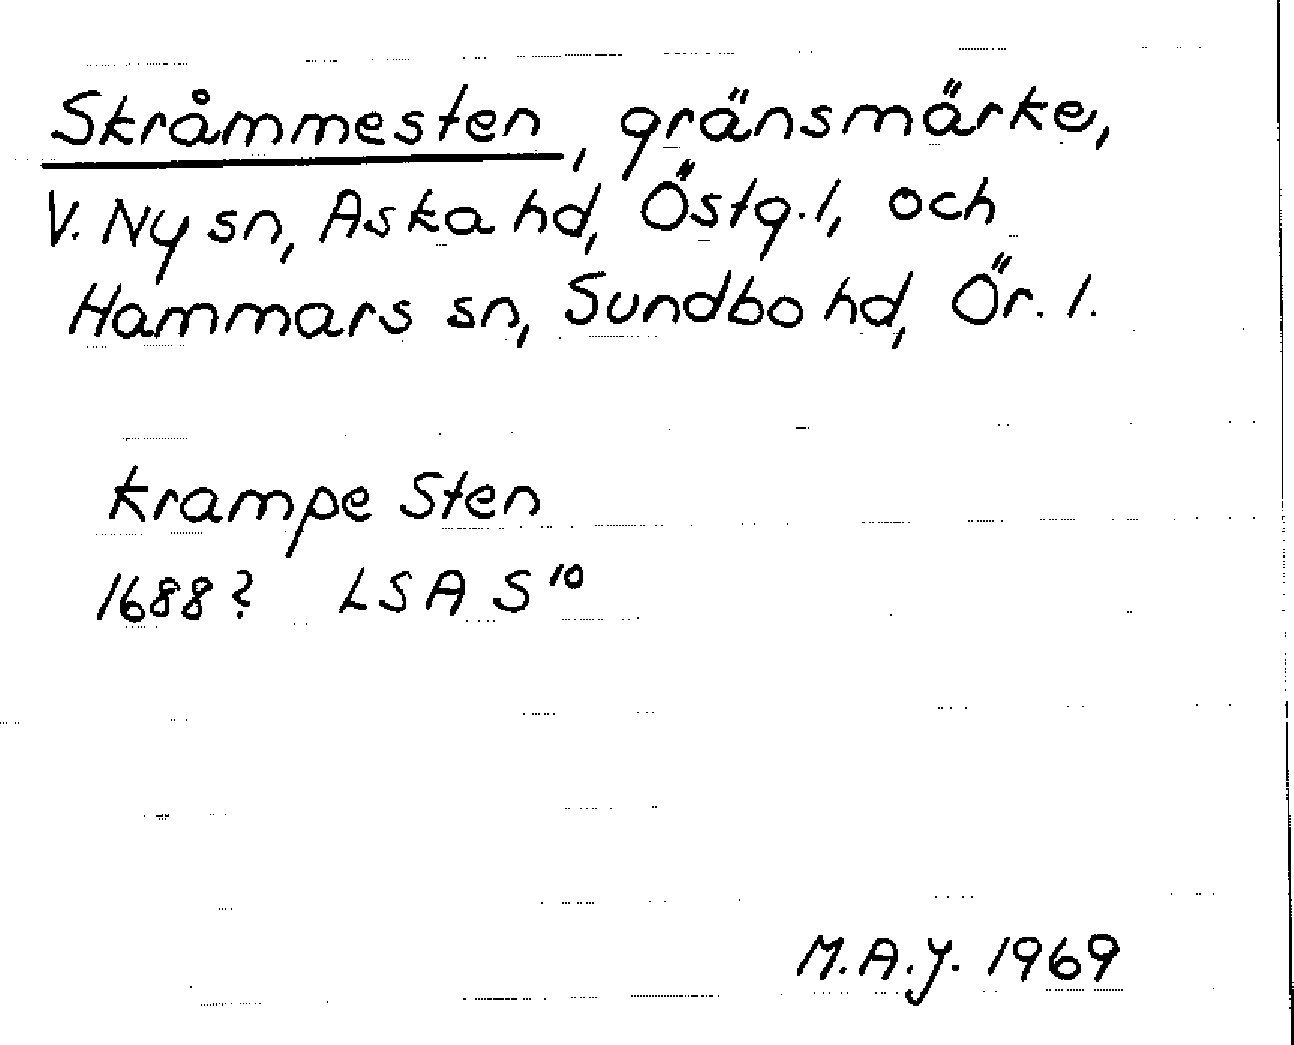 Skråmmesten, gränsmärke,
V. Ny sn, Aska hd, Östg. l, och
Hammars sn, Sundbo hd, Ör. l.
krampe Sten
1688? LSA S¹⁰
M.A.J. 1969